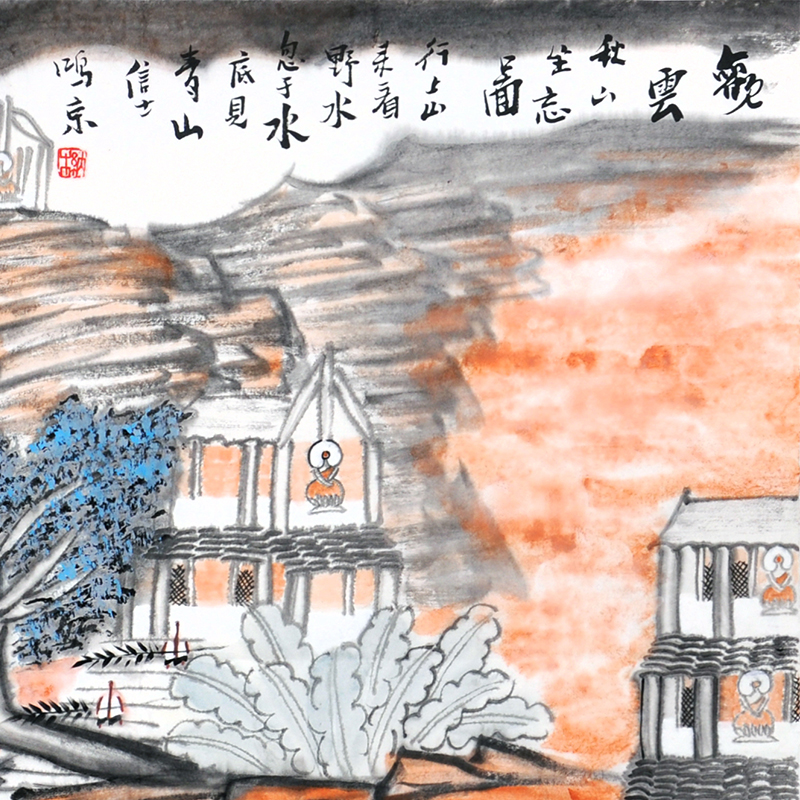 觀
雲
秋山
坐忘
圖
行上山
来看
野水
息于水
底見
青山
信士
鴻京